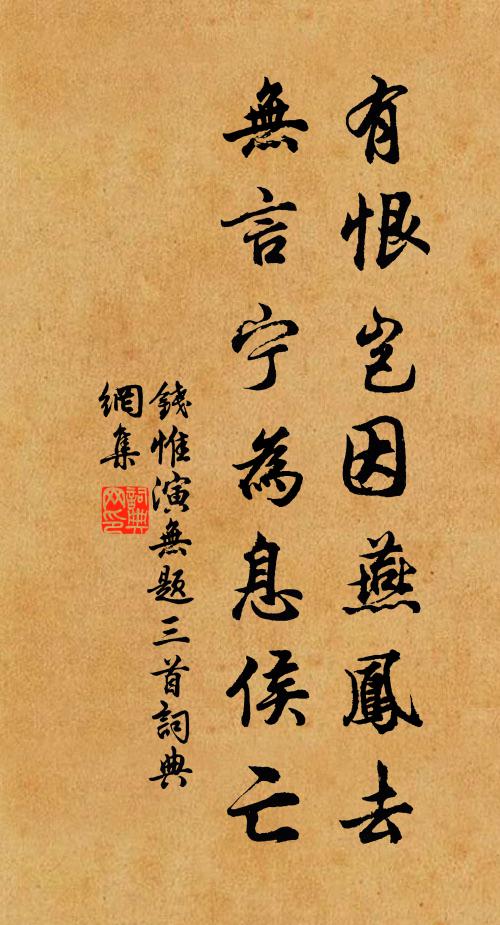 有恨岂因燕鳳去
無言宁為息侯亡
錢惟演無题三首詞典
網集
詞典網印